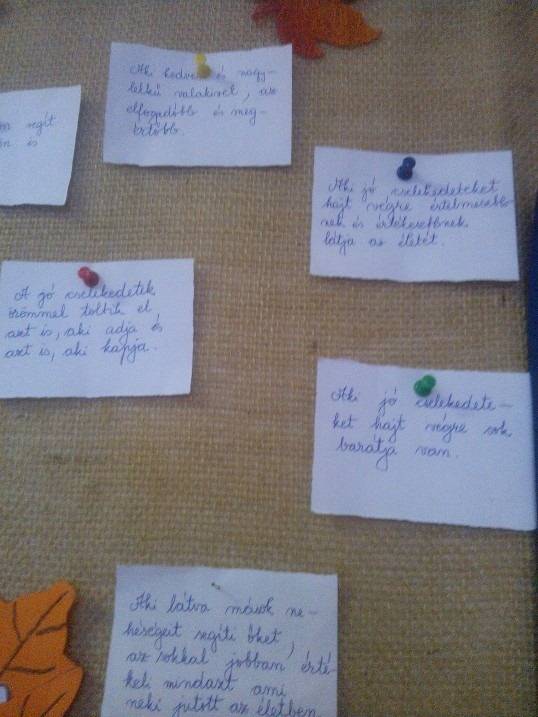 segít
is
Aki kedves és nagy-
lelkű valakivel, az
elfogadóbb és meg-
értőbb.
Aki jó cselekedeteket
hajt végre értelmesebb-
nek és értékesebbnek
látja az életét.
A jó cselekedetek
örömmel töltik el
azt is, aki adja és
azt is, aki kapja.
Aki jó cselekedete-
ket hajt végre sok
barátja van.
Aki látva mások ne-
hézségeit segíti őket,
az sokkal jobban érté-
keli mindazt ami
neki jutott az életben